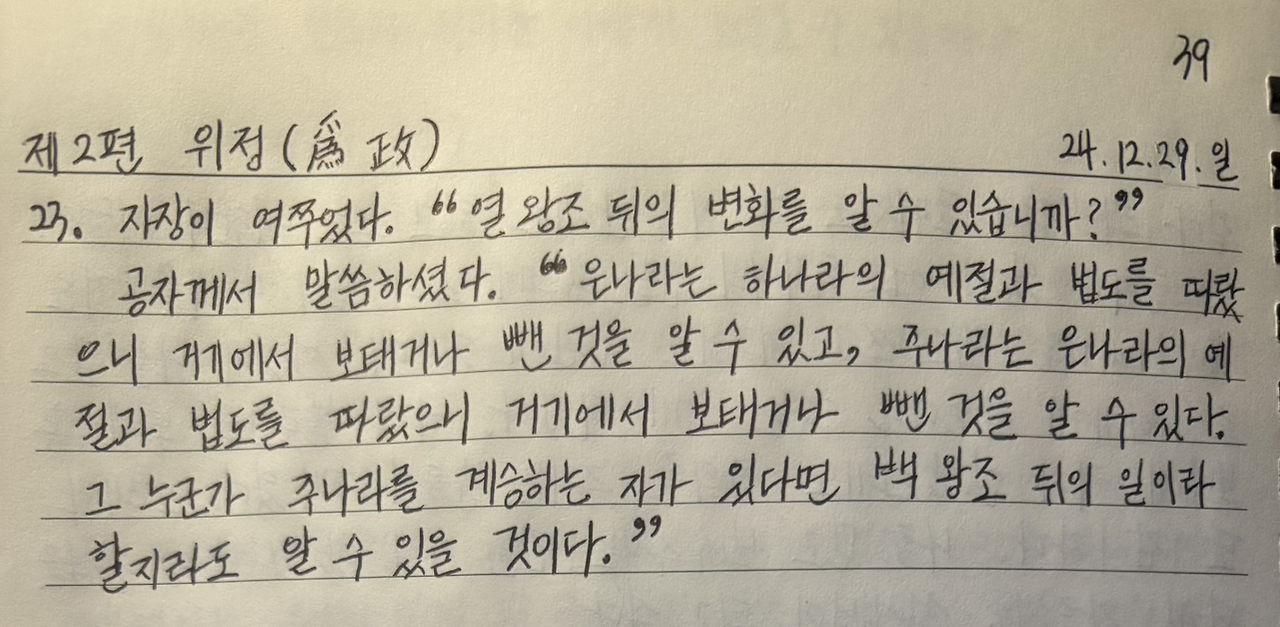 39
제2편 위정(爲政) 24.12.29.일
23. 자장이 여쭈었다. “열 왕조 뒤의 변화를 알 수 있습니까?”
공자께서 말씀하셨다. “은나라는 하나라의 예절과 법도를 따랐
으니 거기에서 보태거나 뺀 것을 알 수 있고, 주나라는 은나라의 예
절과 법도를 따랐으니 거기에서 보태거나 뺀 것을 알 수 있다.
그 누군가 주나라를 계승하는 자가 있다면 백 왕조 뒤의 일이라
할지라도 알 수 있을 것이다.”